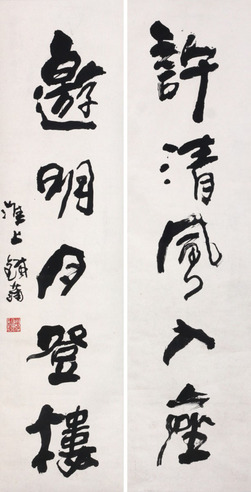 許清風入座
邀明月登樓
淮上